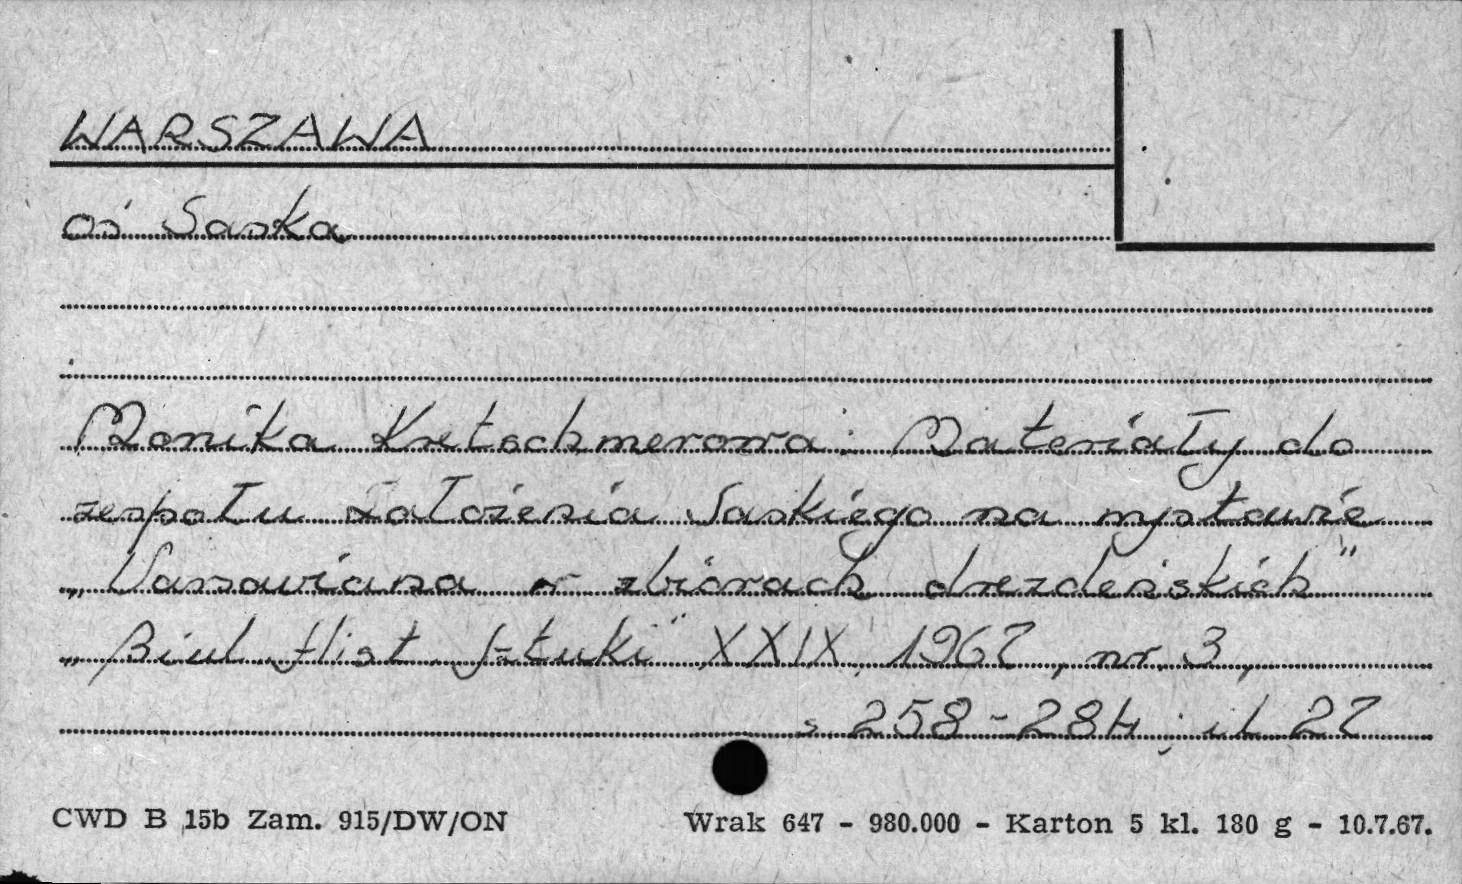 WARSZAWA
oś Saska
Monika Kretschmerowa: Materiały do
zespołu Założenia Saskiego na wystawie
„Varsaviana w zbiorach drezdeńskich"
„Biul. Hist. Sztuki" XXIX, 1967, nr. 3,
s. 258-284; il. 27
CWD B 15b Zam. 915/DW/ON Wrak 647 - 980.000 - Karton 5 kl. 180 g - 10.7.67.